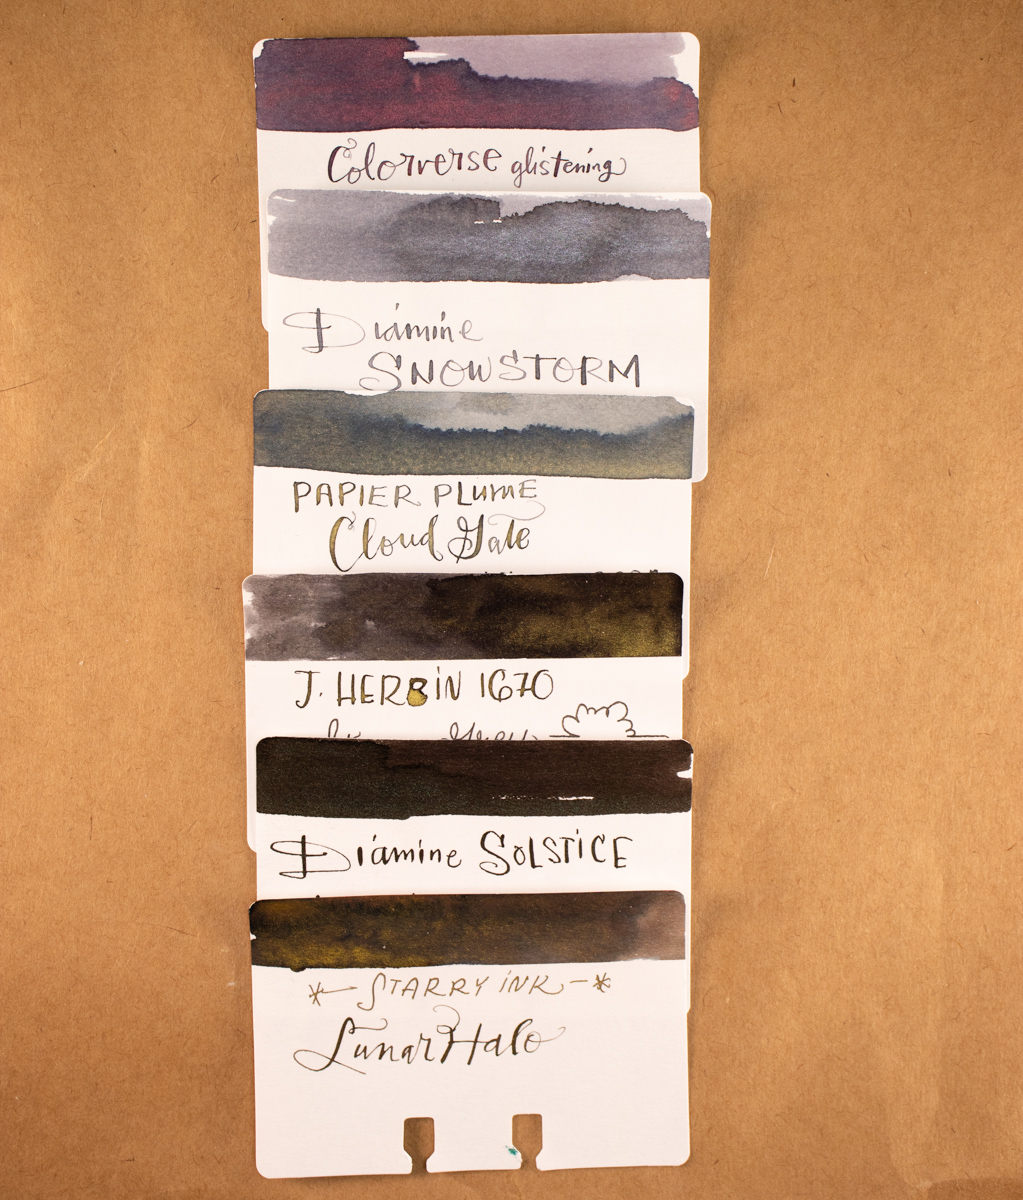 Colorverse glistening
Diamine
SNOWSTORM
PAPIER PLUME
Cloud Gate
J. HERBIN 1670
Diamine SOLSTICE
STARRY INK
Lunar Halo